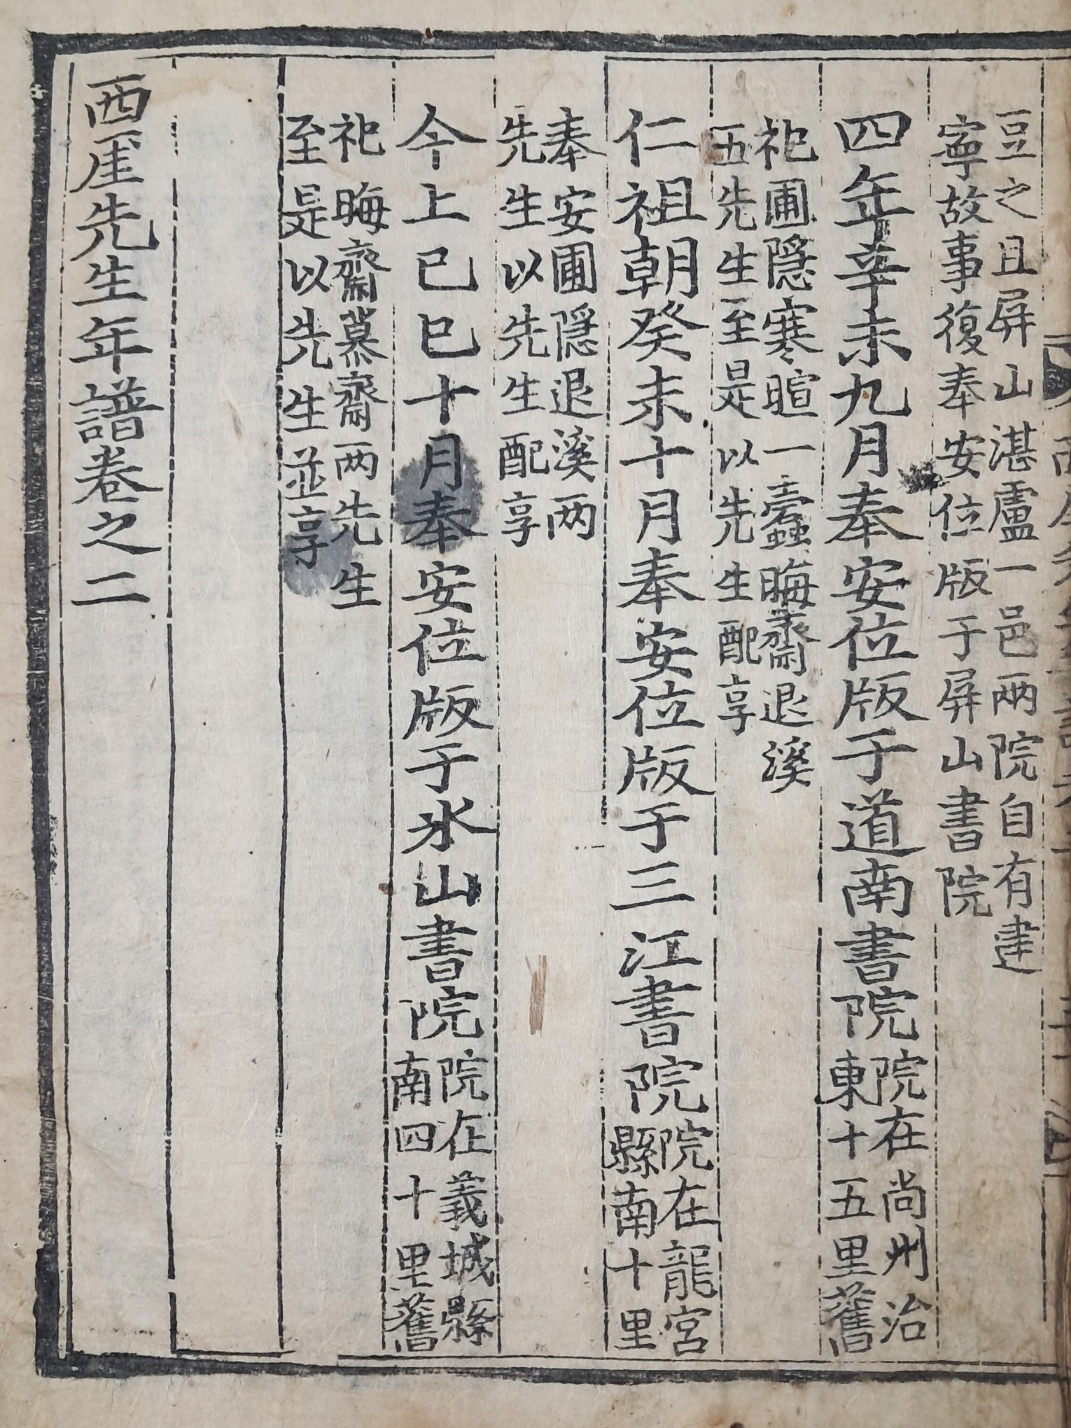 豆之且屏山湛盧一邑兩院自有建
寧故事復奉安位版于屏山書院
四年辛未九月奉安位版于道南書院院在尚州治
東十五里舊
祀圃隱寒暄一蠹晦齋退溪
五先生至是以先生配享
仁祖朝癸未十月奉安位版于三江書院院在龍宮
縣南十里
奉安圃隱退溪两
先生以先生配享
今上己巳十月奉安位版于氷山書院院在義城縣
南四十里舊
祀晦齋慕齋两先生
至是以先生並享
西厓先生年譜卷之二